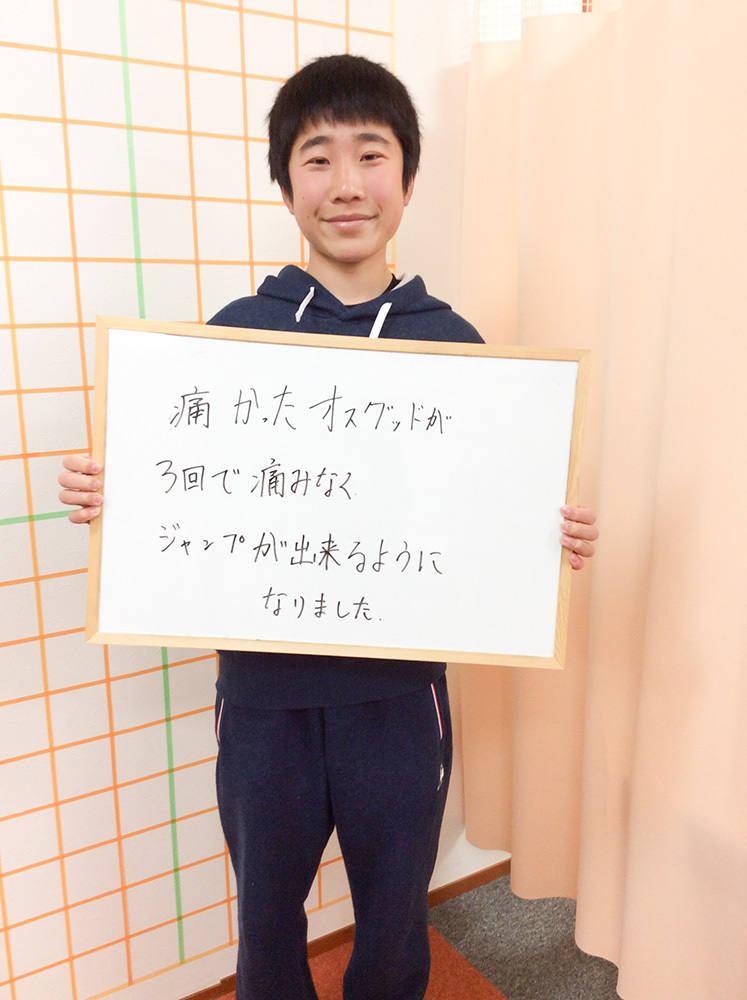 痛かったオスグッドが
3回で痛みなく
ジャンプが出来るように
なりました.